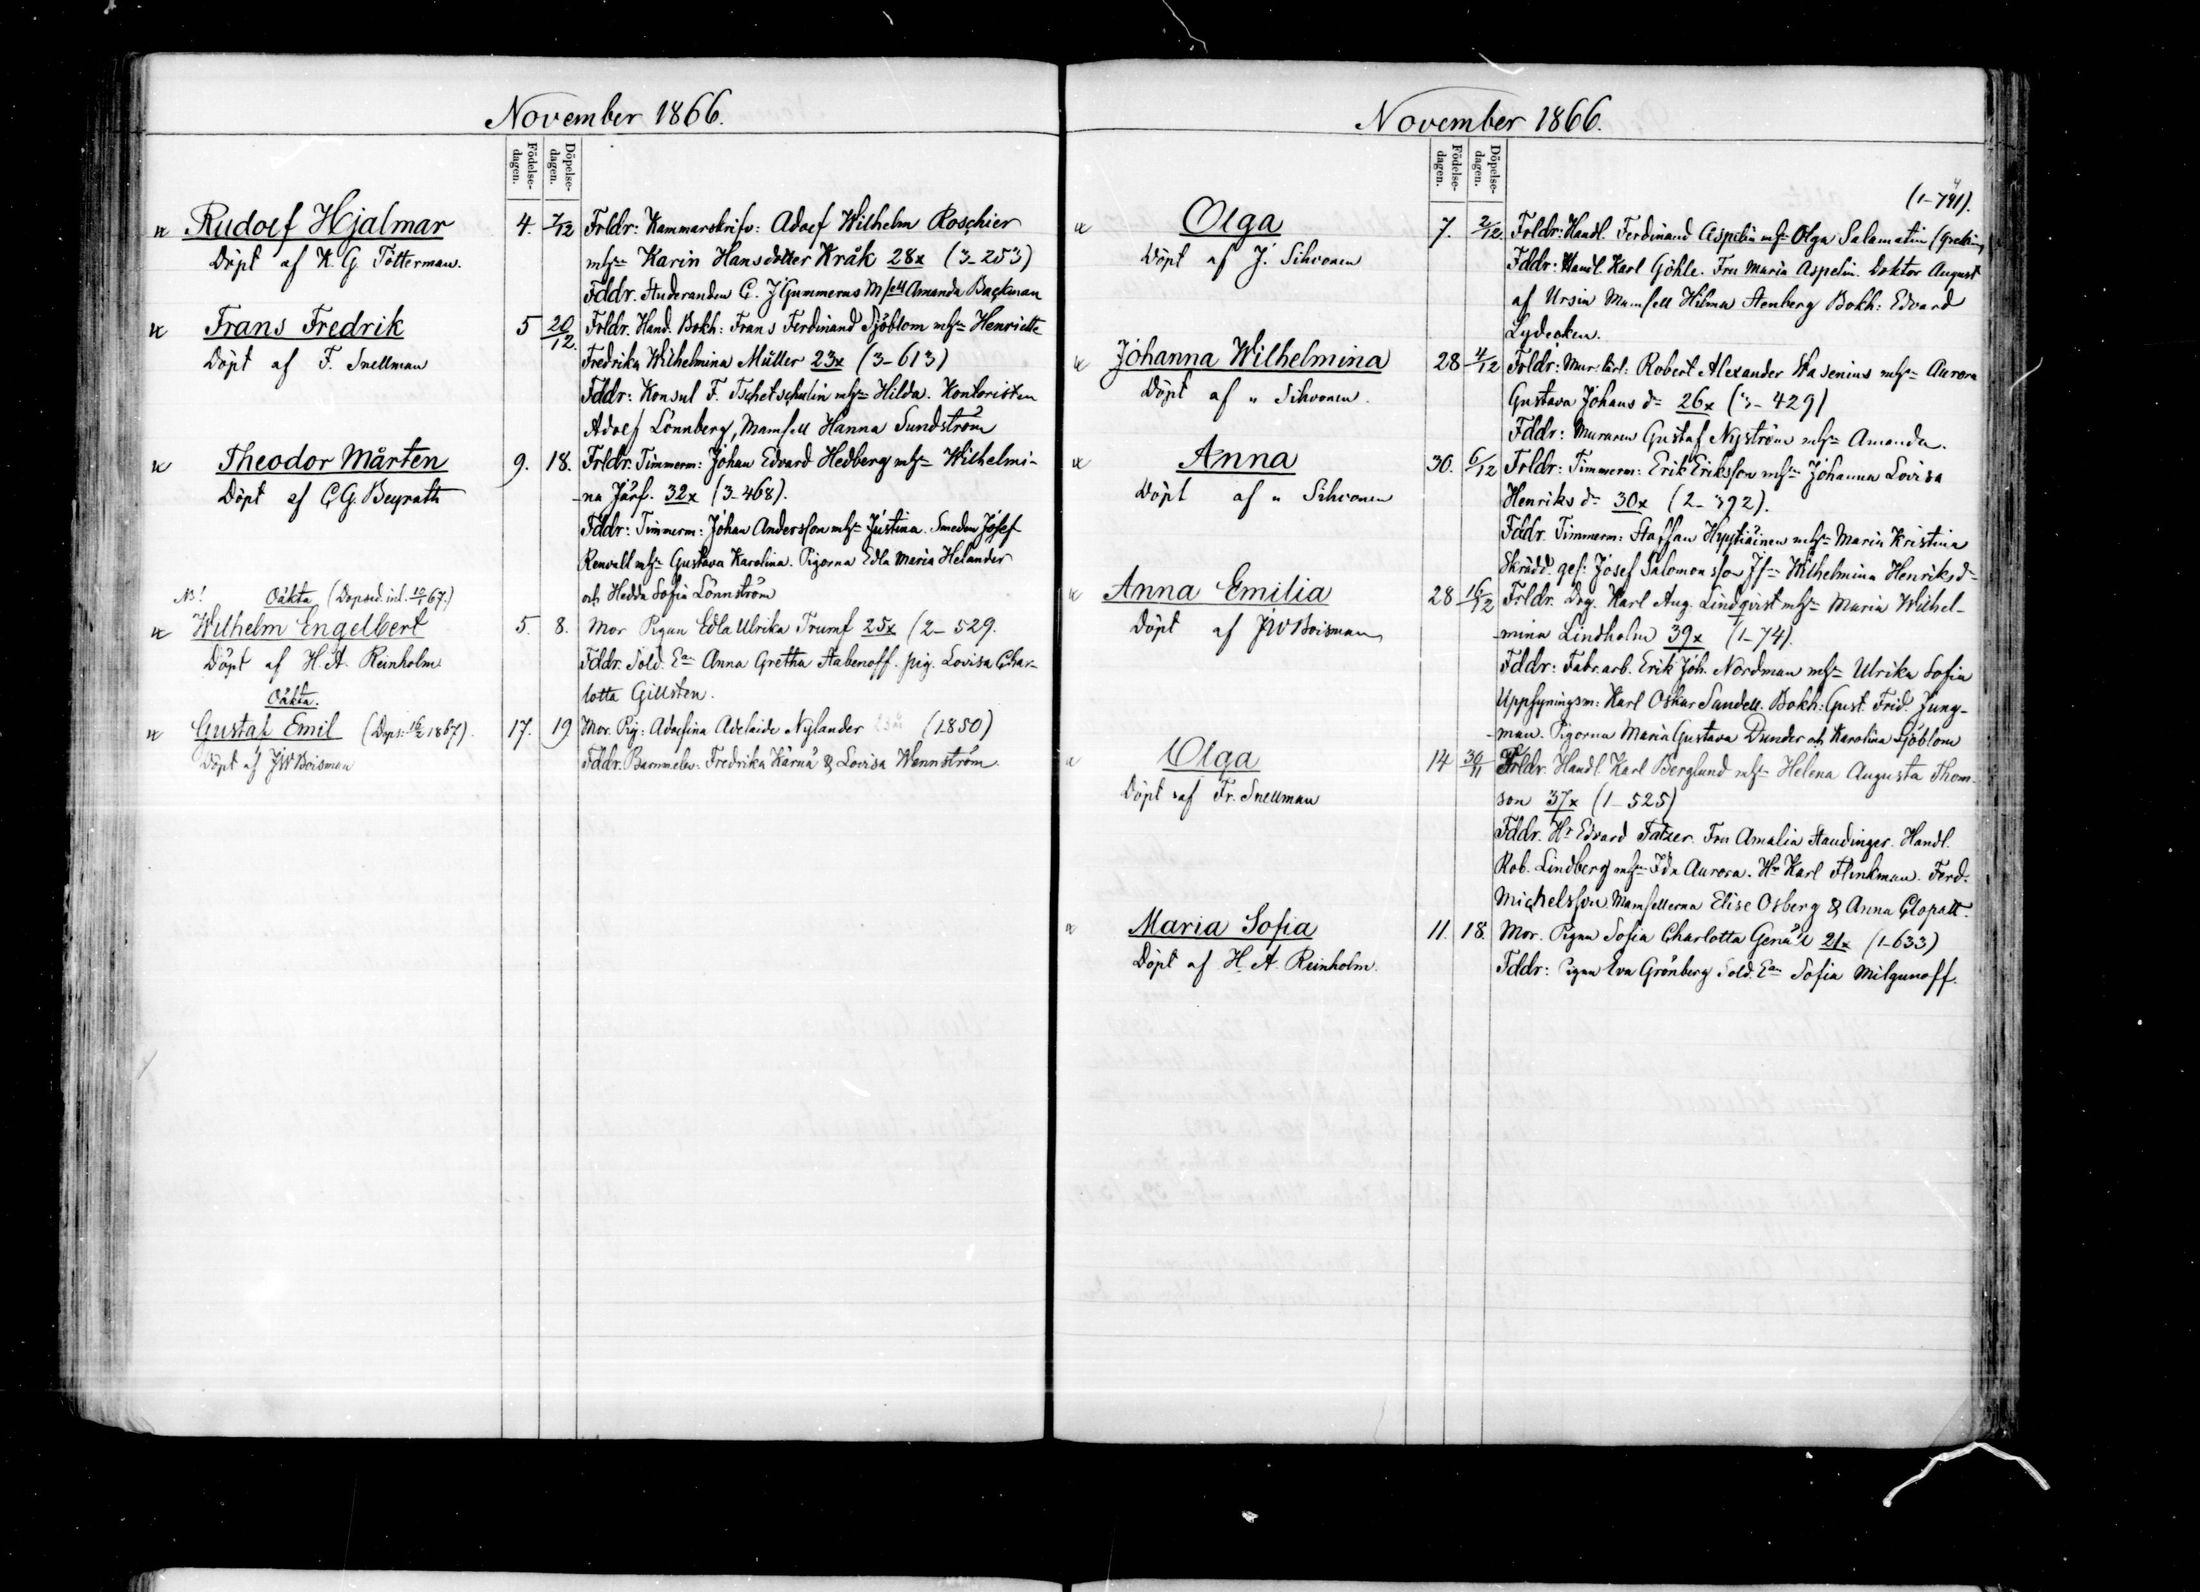 November 1866.
Födelse-dagen.
Döpelse-dagen.
Rudolf Hjalmar 4. 7/12 Frldr: Kammarskrifv: Adolf Wilhelm Roschier
Döpt af K. G. Tötterman. mhn Karin Hansdotter Kråk 28x (3-253)
Fddr. Studeranden C. J Gummerus Msell Amanda Backman
Frans Fredrik 5 20/12. Frldr. Hand. Bokh: Frans Ferdinand Sjöblom mhn Henriette
Döpt af F. Snellman Fredrika Wilhelmina Müller 23x (3-613)
Fddr: Konsul F. Tschetschulin mhn Hilda. Kontoristen
Adolf Lönnberg, Mamsell Hanna Sundström
Theodor Mårten 9. 18. Frldr. Timmerm: Johan Edvard Hedberg mhn Wilhelmi-
Döpt af C G. Beyrath na Järf. 32x (3-468).
Fddr: Timmerm: Johan Andersson mhn Justina. Smeden Josef
Renvall mhn Gustava Karolina. Pigorna Edla Maria Helander
och Hedda Sofia Lönnström
NB! Oäkta (Dopsed. inl. 10/1 67.)
Wilhelm Engelbert 5. 8. Mor Pigan Edla Ulrika Trumf 25x (2-529.
Döpt af H. A. Reinholm Fddr. Sold. En Anna Gretha Stabenoff. pig. Lovisa Char-
lotta Gillsten.
Oäkta.
Gustaf Emil (Dops: 16/2 1867). 17. 19 Mor. Pig: Adolfina Adelaide Nylander (1.850)
Döpt af JW Boisman Fddr. Barnmelw: Fredrika Kärnä & Lovisa Wennström
November 1866.
Födelse-dagen.
Döpelse-dagen.
(1-791).
Olga 7. 2/12. Frldr: Handl. Ferdinand Aspelin mhn Olga Salamatin (grekin)
Döpt af J. Sihvonen Fddr: Handl. Karl Göhle. Fru Maria Aspelin. Doktor August
af Ursin Mamsell Hilma Stenberg Bokh: Edvard
Lydecken.
Johanna Wilhelmina 28 4/12 Frldr: Mur: lärl: Robert Alexander Wasenius mhn Aurora
Döpt af " Sihvonen. Gustava Johans dr 26x (3-429)
Fddr: Muraren Gustaf Nyström mhn Amanda.
Anna 30. 6/12 Frldr: Timmerm: Erik Eriksson mhn Johanna Lovisa
Döpt af " Sihvonen Henriks dr 30x (2-392).
Fddr. Timmerm: Staffan Hyytiäinen mhn Maria Kristina
Skrädd. ges: Josef Salomonsson Jfn Wilhelmina Henriksdr
Anna Emilia 28 16/12 Frldr. Drg. Karl Aug. Lindqvist mhn Maria Wilhel-
Döpt af JW Boisman mina Lindholm 39x (1-74).
Fddr: Fabr. arb. Erik Joh. Nordman mhn Ulrika Sofia
Uppsyningsm: Karl Oskar Sandell. Bokh: Gust. Frid. Jung-
man. Pigorna Maria Gustava Dunder och Karolina Sjöblom
Olga 14 30/11 Frldr. Handl. Karl Berglund mhn Helena Augusta Thom-
Döpt af Fr. Snellman son 37x (1-525)
Fddr. Hr Edvard Fatzer. Fru Amalia Staudinger. Handl.
Rob. Lindberg mhn Ida Aurora. Hr Karl Flinkman. Ferd.
Michelsson. Mamsellerna Elise Osberg & Anna Clopatt.
Maria Sofia 11. 18. Mor. Pigan Sofia Charlotta 21x (1-633)
Döpt af H. A. Reinholm. Fddr: Pigan Eva Grönberg Sold. En Sofia Milgunoff.